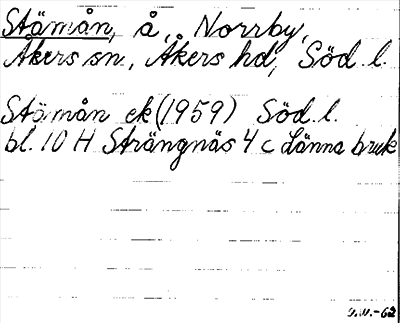 Stämån, å, Norrby,
Åkers sn., Åkers hd, Söd. l.
Stämån ek (1959) Söd. l.
bl. 10 H Strängnäs 4 c Länna bruk